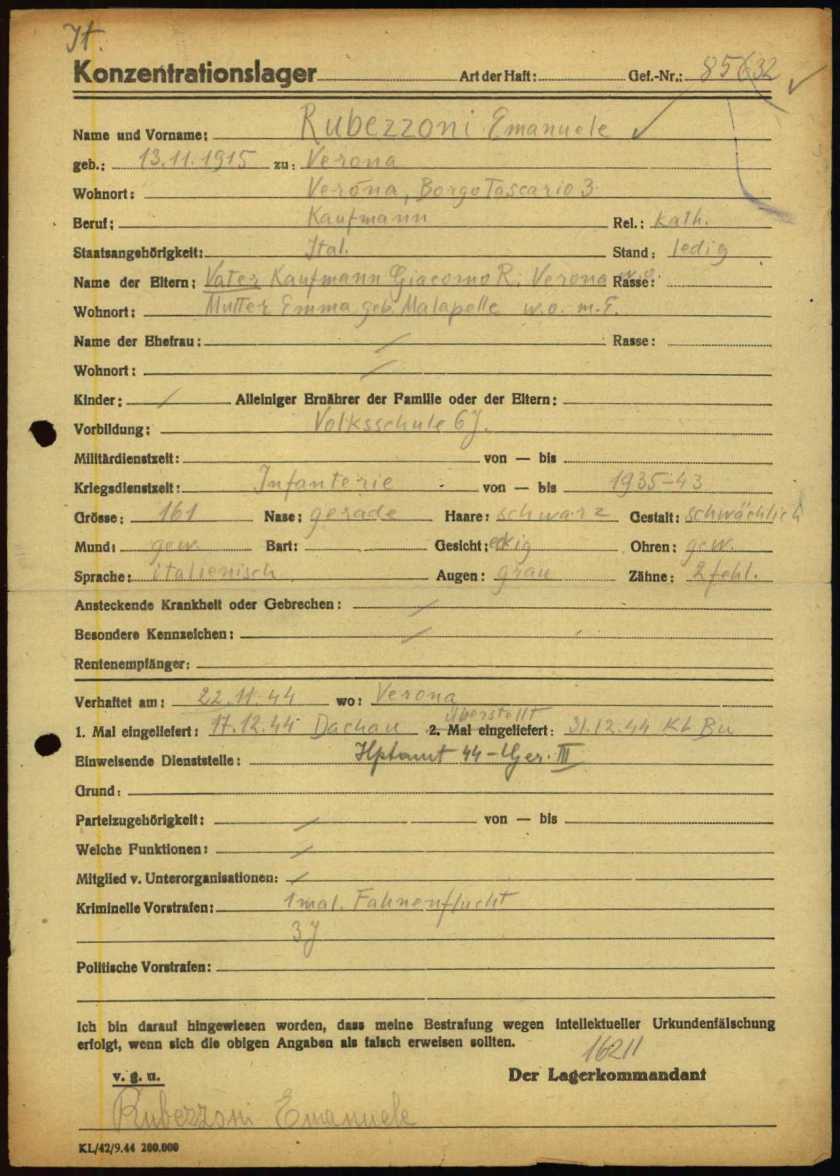 It.
Konzentrationslager Art der Haft: Gef.-Nr.: 85632
Name und Vorname: Rubezzoni Emanuele
geb.: 13.11.1915 zu: Verona
Wohnort: Verona, Borgo Tascario 3
Beruf: Kaufmann Rel.: kath.
Staatsangehörigkeit: Ital. Stand: ledig
Name der Eltern: Vater Kaufmann Giacomo R. Verona Rasse:
Wohnort: Mutter Emma geb. Malapelle w.o.
Name der Ehefrau: / Rasse:
Wohnort: /
Kinder: / Alleiniger Ernährer der Familie oder der Eltern:
Vorbildung: Volksschule 6J.
Militärdienstzeit: von — bis
Kriegsdienstzeit: Infanterie von — bis 1935-43
Grösse: 161 Nase: gerade Haare: schwarz Gestalt: schwächlich
Mund: gew. Bart: Gesicht: eckig Ohren: gew.
Sprache: italienisch Augen: grau Zähne: 2 fehl.
Ansteckende Krankheit oder Gebrechen: /
Besondere Kennzeichen: /
Rentenempfänger:
Verhaftet am: 22.11.44 wo: Verona
überstellt
1. Mal eingeliefert: 17.12.44 Dachau 2. Mal eingeliefert: 31.12.44 KL Bu
Einweisende Dienststelle: Hptamt
Grund:
Parteizugehörigkeit: / von — bis
Welche Funktionen: /
Mitglied v. Unterorganisationen: /
Kriminelle Vorstrafen: 1mal. Fahnenflucht
3J
Politische Vorstrafen:
Ich bin darauf hingewiesen worden, dass meine Bestrafung wegen intellektueller Urkundenfälschung
erfolgt, wenn sich die obigen Angaben als falsch erweisen sollten.
16211
v. g. u. Der Lagerkommandant
Rubezzoni Emanuele
KL/42/9.44 200.000